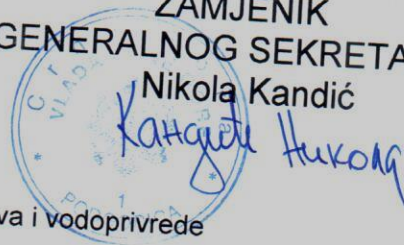 ZAMJENIK
GENERALNOG SEKRETA
Nikola Kandić
Кандић Никола
va i vodoprivrede